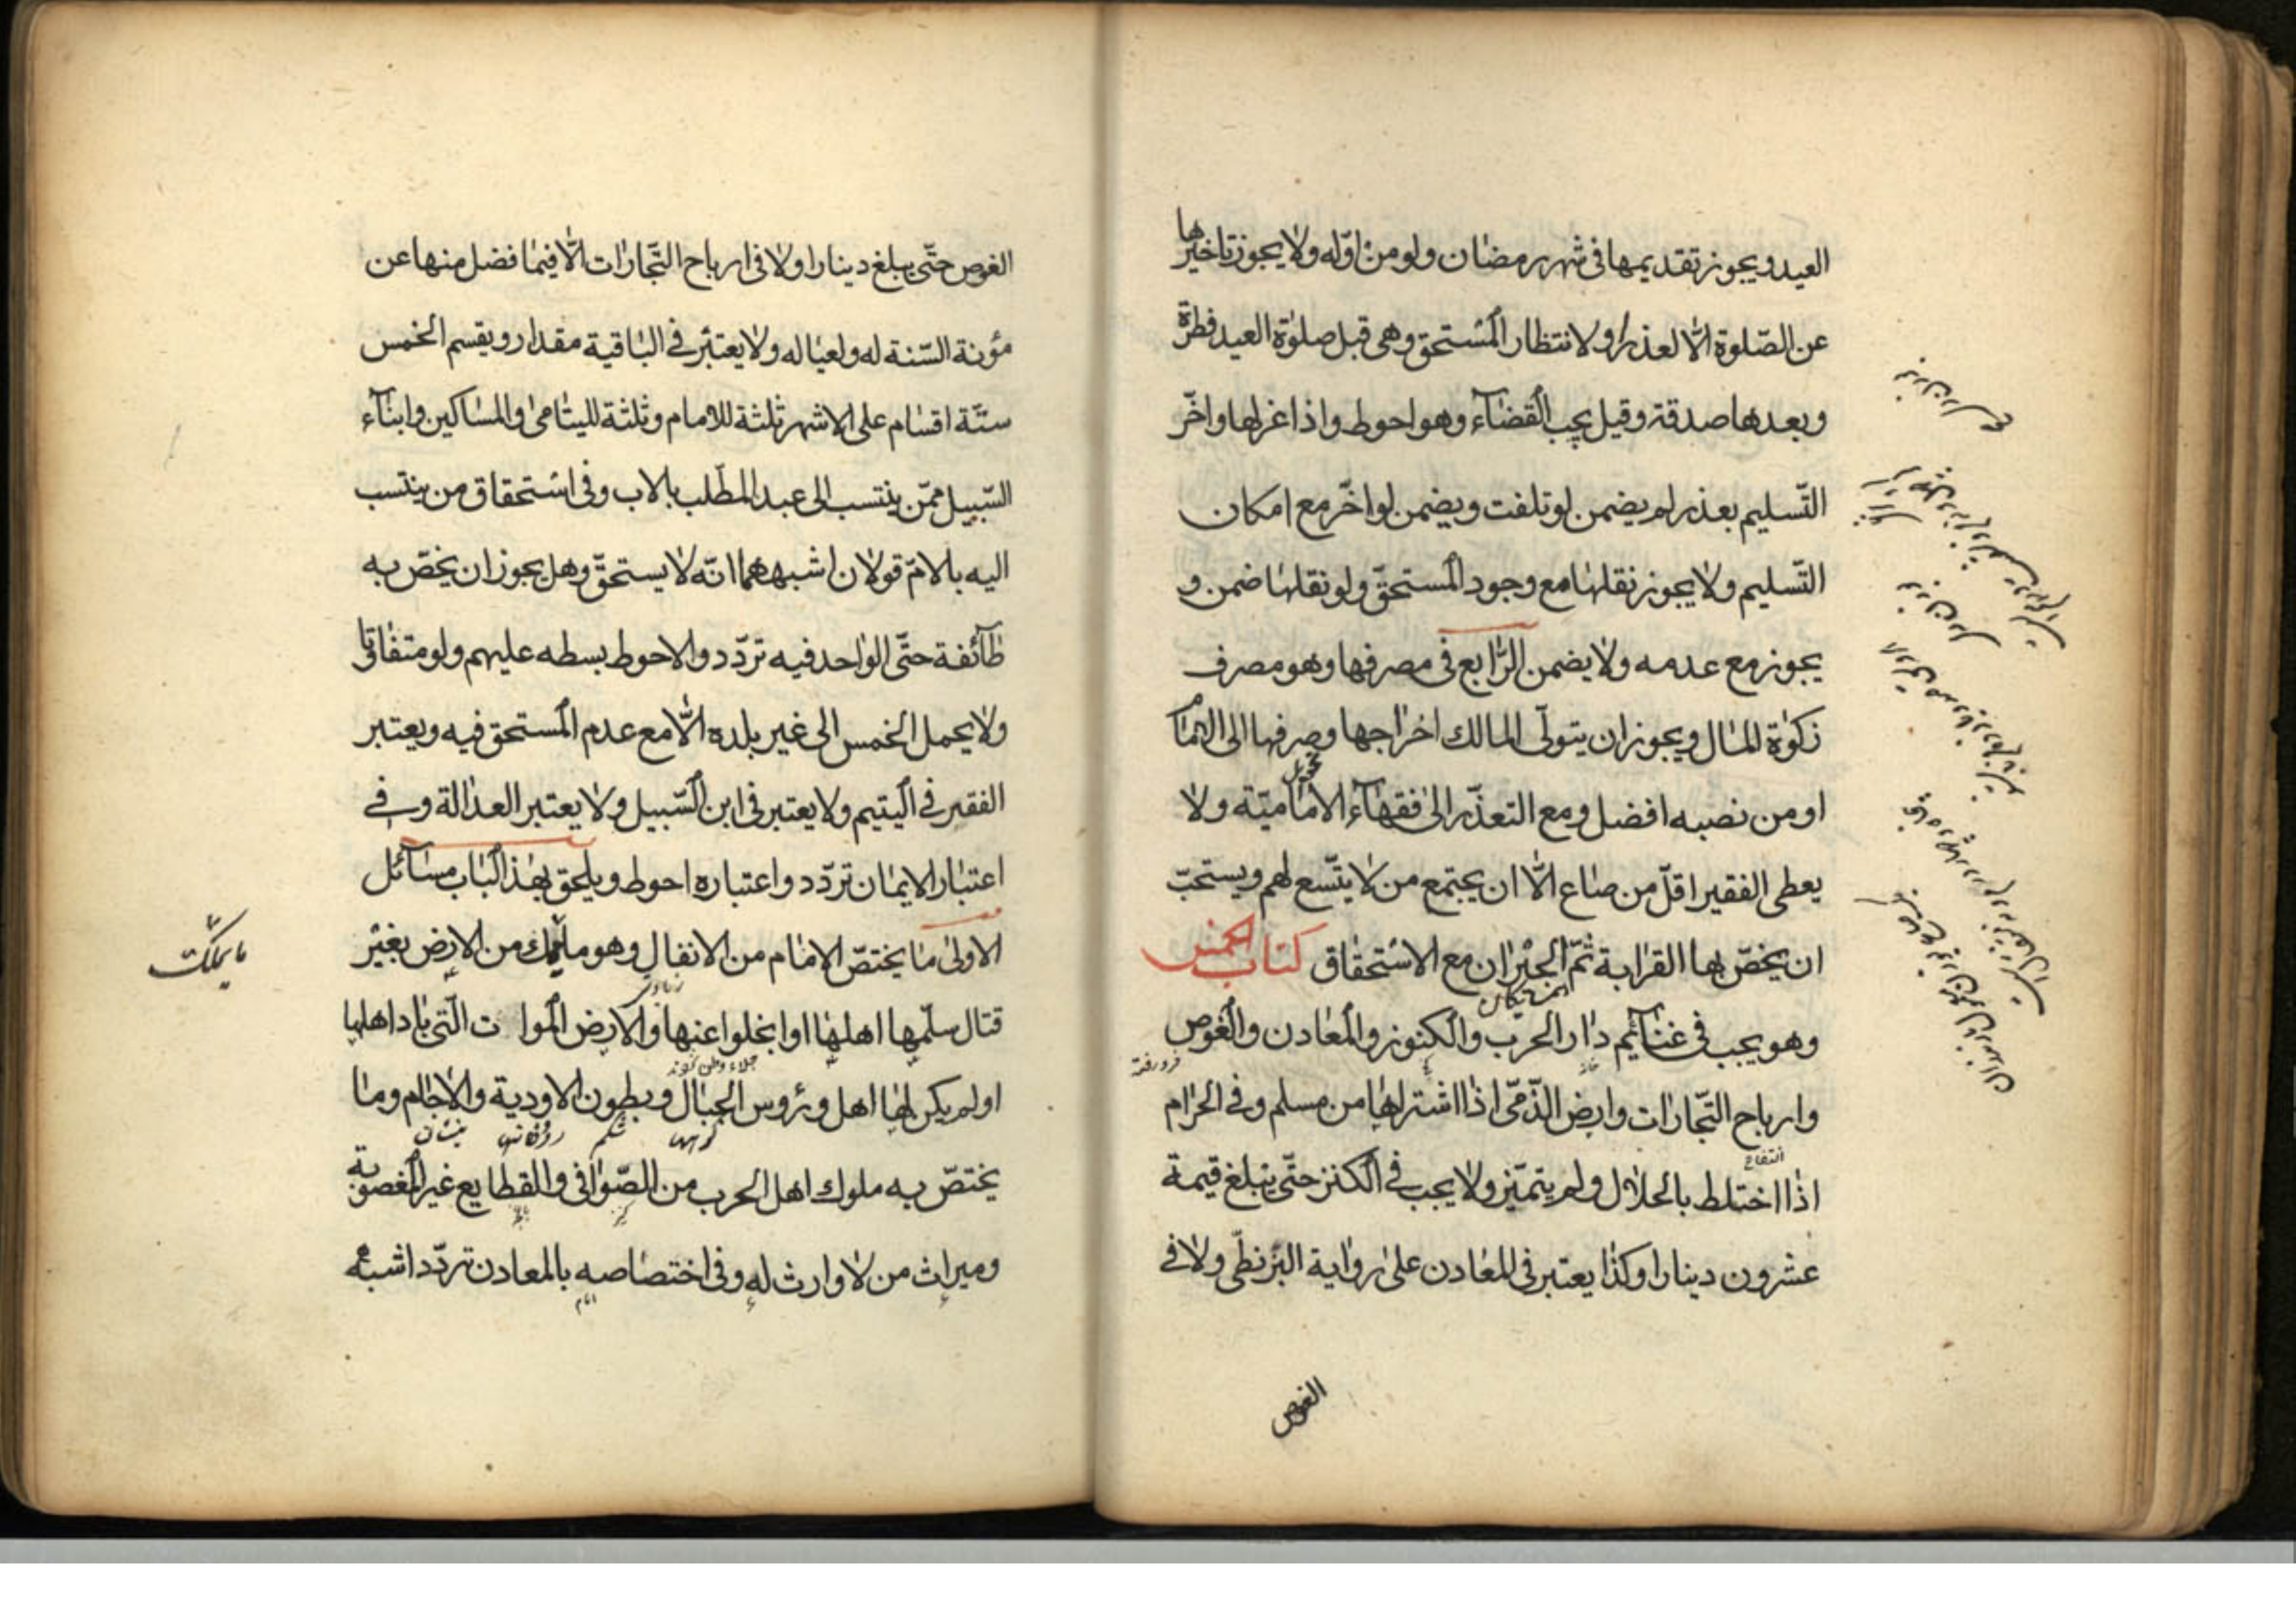 العيد ويجوز تقديمها فى شهر رمضان ولو من اوّله ولا يجوز تاخيرها
عن الصّلوة الّا لعذر او لانتظار المستحق وهى قبل صلوة العيد فطرة
وبعدها صدقة وقيل يجب القضآء وهو احوط واذا عزلها واخّر
التّسليم بعذر لم يضمن لو تلفت ويضمن لو اخّر مع امكان
التّسليم ولا يجوز نقلها مع وجود المستحقّ ولو نقلها ضمن و
يجوز مع عدمه ولا يضمن الرّابع فى مصرفها وهو مصرف
زكوة المال ويجوز ان يتولّى المالك اخراجها وصرفها الى الامام
او من نصبه افضل ومع التعذّر الى فقهآء الاماميّة ولا
يعطى الفقير اقلّ من صاع الّا ان يجتمع من لا يتّسع لهم ويستحبّ
ان يخصّ بها القرابة ثمّ الجيران مع الاستحقاق كتاب الخمس
همسايكان
وهو يجب فى غنآئم دار الحرب والكنوز والمعادن والغوص
فرو رفتن
وارباح التّجارات وارض الذّمّى اذا اشتراها من مسلم وفى الحرام
اذا اختلط بالحلال ولم يتميّز ولا يجب فى الكنز حتّى يبلغ قيمة
عشرون دينارا وكذا يعتبر فى المعادن على رواية البزنطى ولا فى
الغوص
الغوص حتّى يبلغ دينارا ولا فى ارباح التّجارات الّا فيما فضل منها عن
مؤنة السّنة له ولعياله ولا يعتبر فى الباقية مقدار ويقسم الخمس
ستّة اقسام على الاشهر ثلثة للامام وثلثة لليتامى والمساكين وابنآء
السّبيل ممّن ينتسب الى عبد المطّلب بالاب وفى استحقاق من ينتسب
اليه بالامّ قولان اشبههما انّه لا يستحقّ وهل يجوز ان يخصّ به
طآئفة حتّى الواحد فيه تردّد والاحوط بسطه عليهم ولو متفاوتا
ولا يحمل الخمس الى غير بلده الّا مع عدم المستحق فيه ويعتبر
الفقر فى اليتيم ولا يعتبر فى ابن السّبيل ولا يعتبر العدالة وفى
اعتبار الايمان تردّد واعتباره احوط ويلحق بهذا الباب مسآئل
الاولى ما يختصّ الامام من الانفال وهو ما يملك من الارض بغير
ما يملك
قتال سلّمها اهلها او انجلوا عنها والارض الموات التّى باد اهلها
جلاء وطن كردند
او لم يكن لها اهل ورؤس الجبال وبطون الاودية والاجام وما
كوهها شكم رودخانها نيستان
يختصّ به ملوك اهل الحرب من الصّوافى والقطايع غير المغصوبة
وميراث من لا وارث له وفى اختصاصه بالمعادن تردّد اشبهه